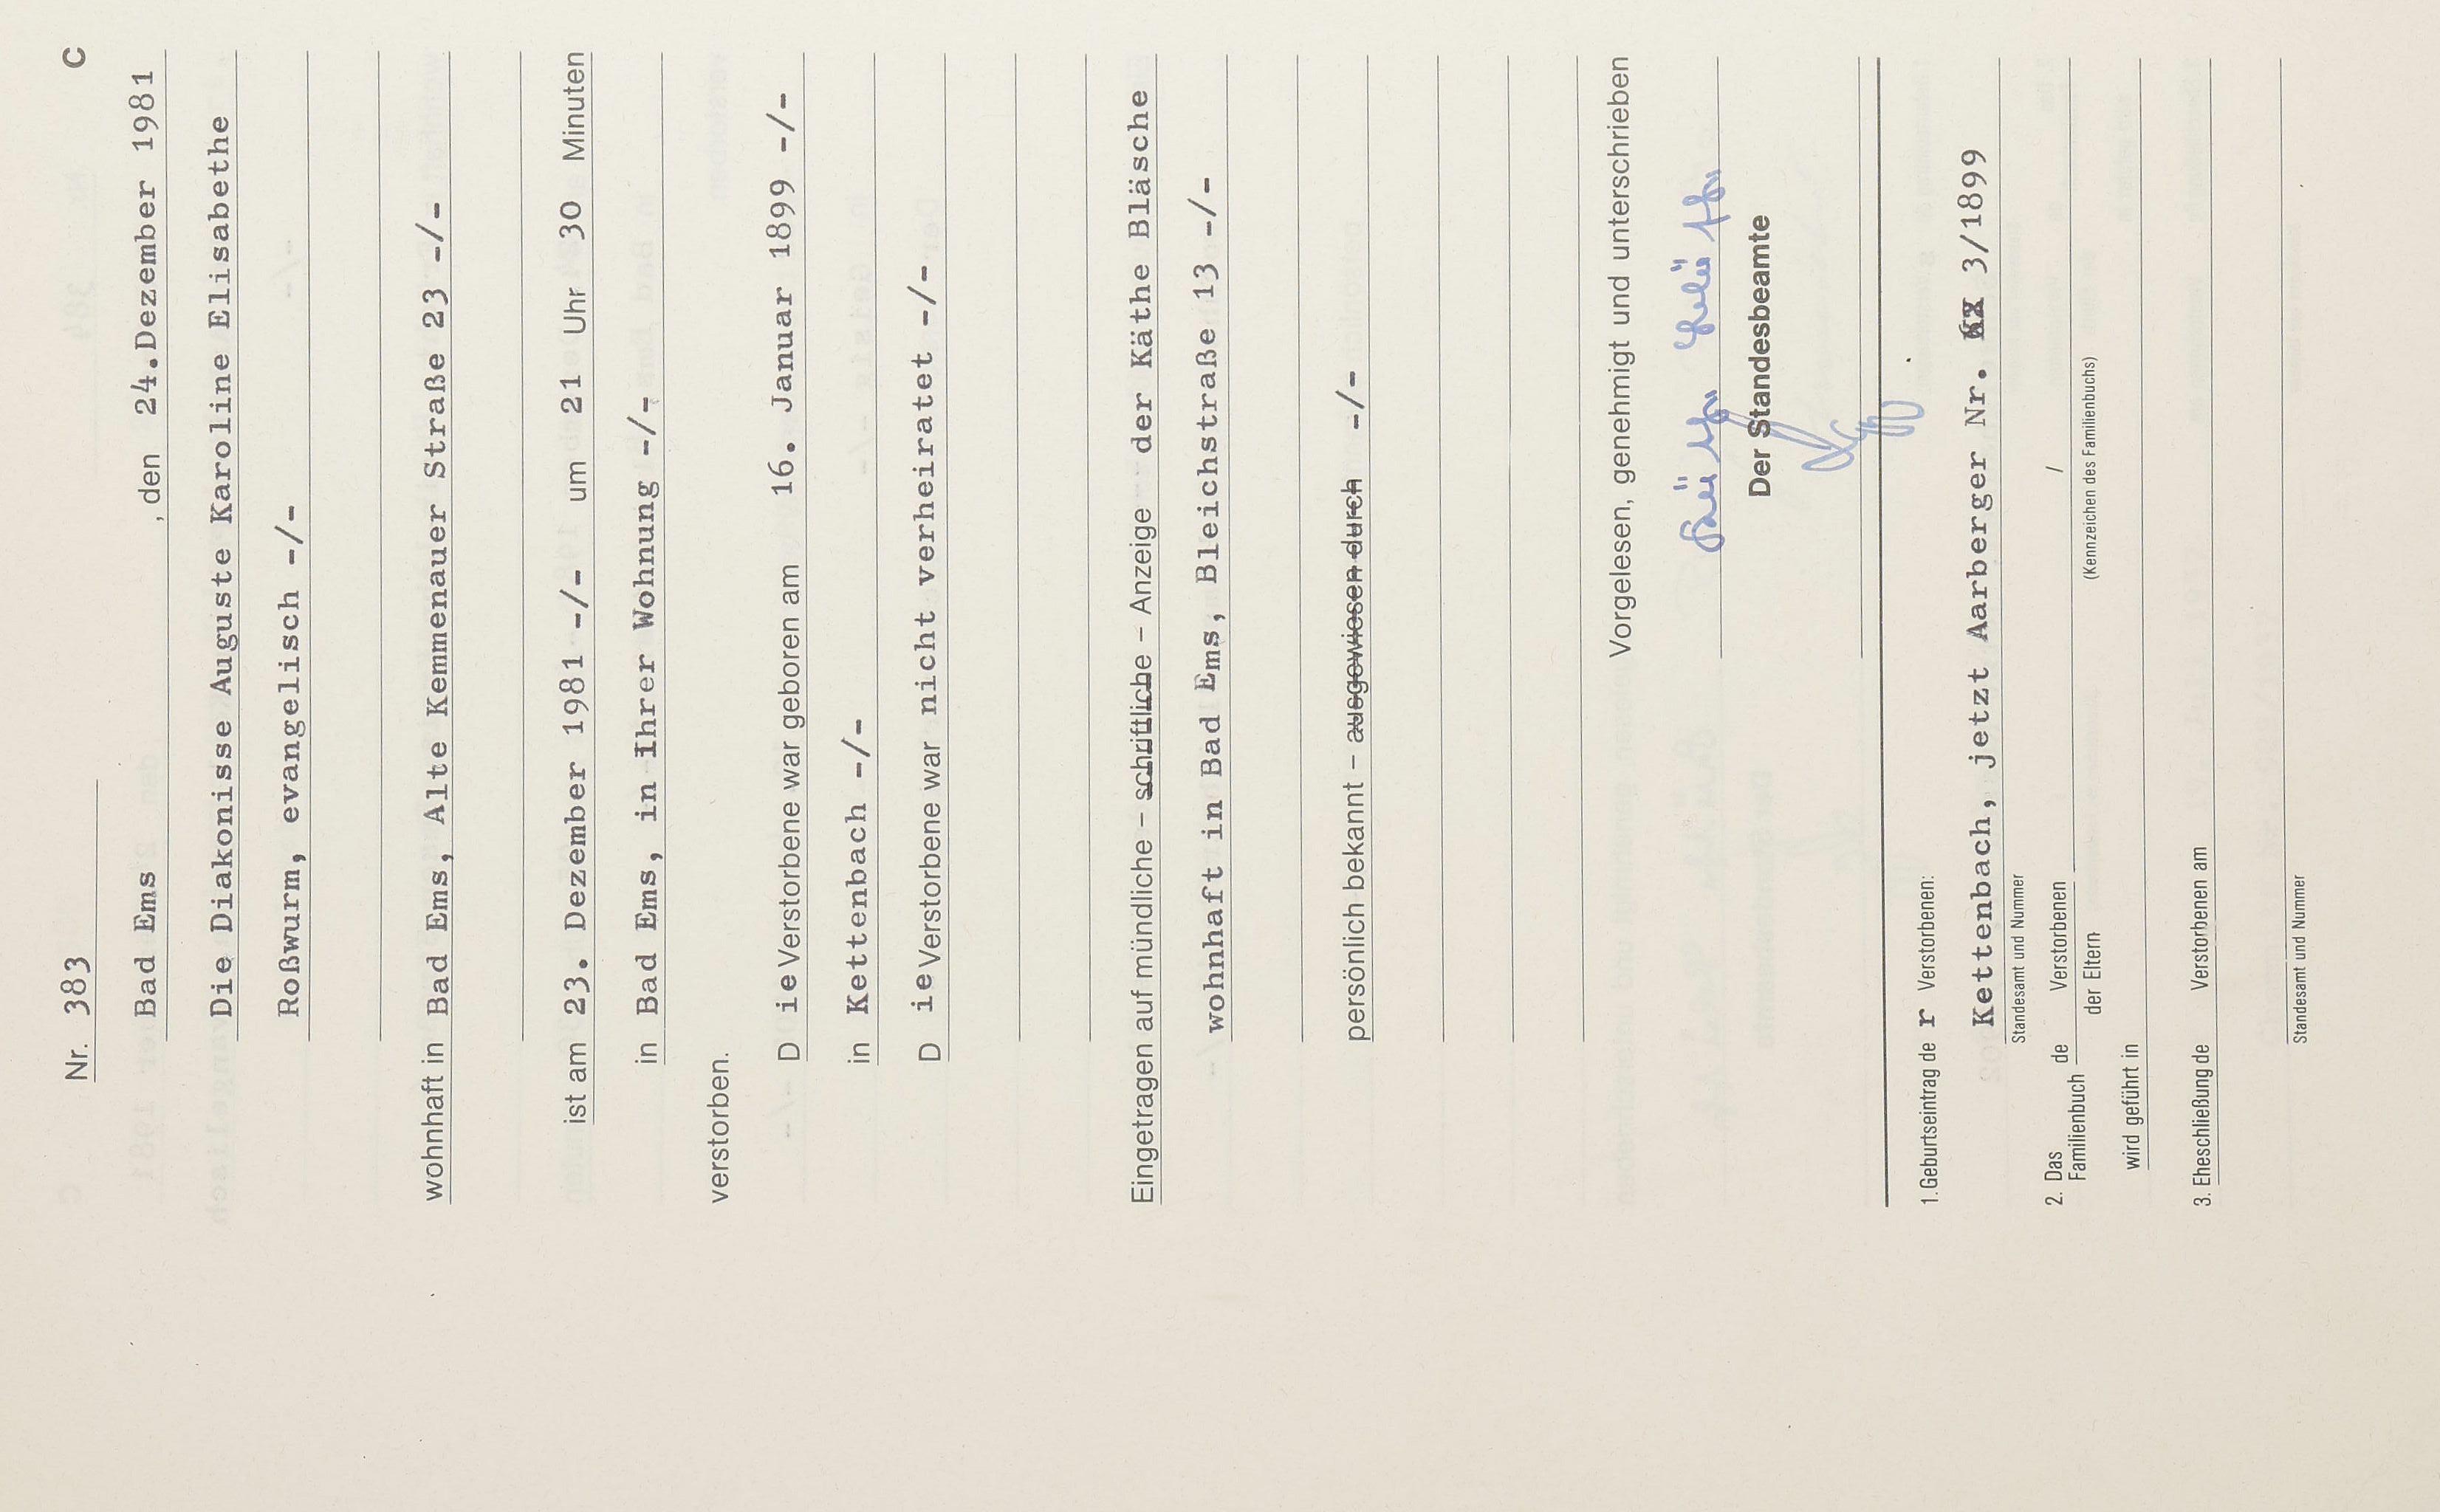 Nr. 383 C
Bad Ems, den 24.Dezember 1981
Die Diakonisse Auguste Karoline Elisabethe
Roßwurm, evangelisch -/-
wohnhaft in Bad Ems, Alte Kemmenauer Straße 23 -/-
ist am 23. Dezember 1981 -/- um 21 Uhr 30 Minuten
in Bad Ems, in ihrer Wohnung -/-
verstorben.
D ie Verstorbene war geboren am 16. Januar 1899 -/-
in Kettenbach -/-
D ie Verstorbene war nicht verheiratet -/-
Eingetragen auf mündliche – schriftliche – Anzeige der Käthe Bläsche
wohnhaft in Bad Ems, Bleichstraße 13 -/-
persönlich bekannt – ausgewiesen durch -/-
Vorgelesen, genehmigt und unterschrieben
Der Standesbeamte
1. Geburtseintrag de r Verstorbenen:
Kettenbach, jetzt Aarberger Nr. 3/1899
Standesamt und Nummer
2. Das Familienbuch de Verstorbenen /
der Eltern (Kennzeichen des Familienbuchs)
wird geführt in
3. Eheschließung de Verstorbenen am
Standesamt und Nummer